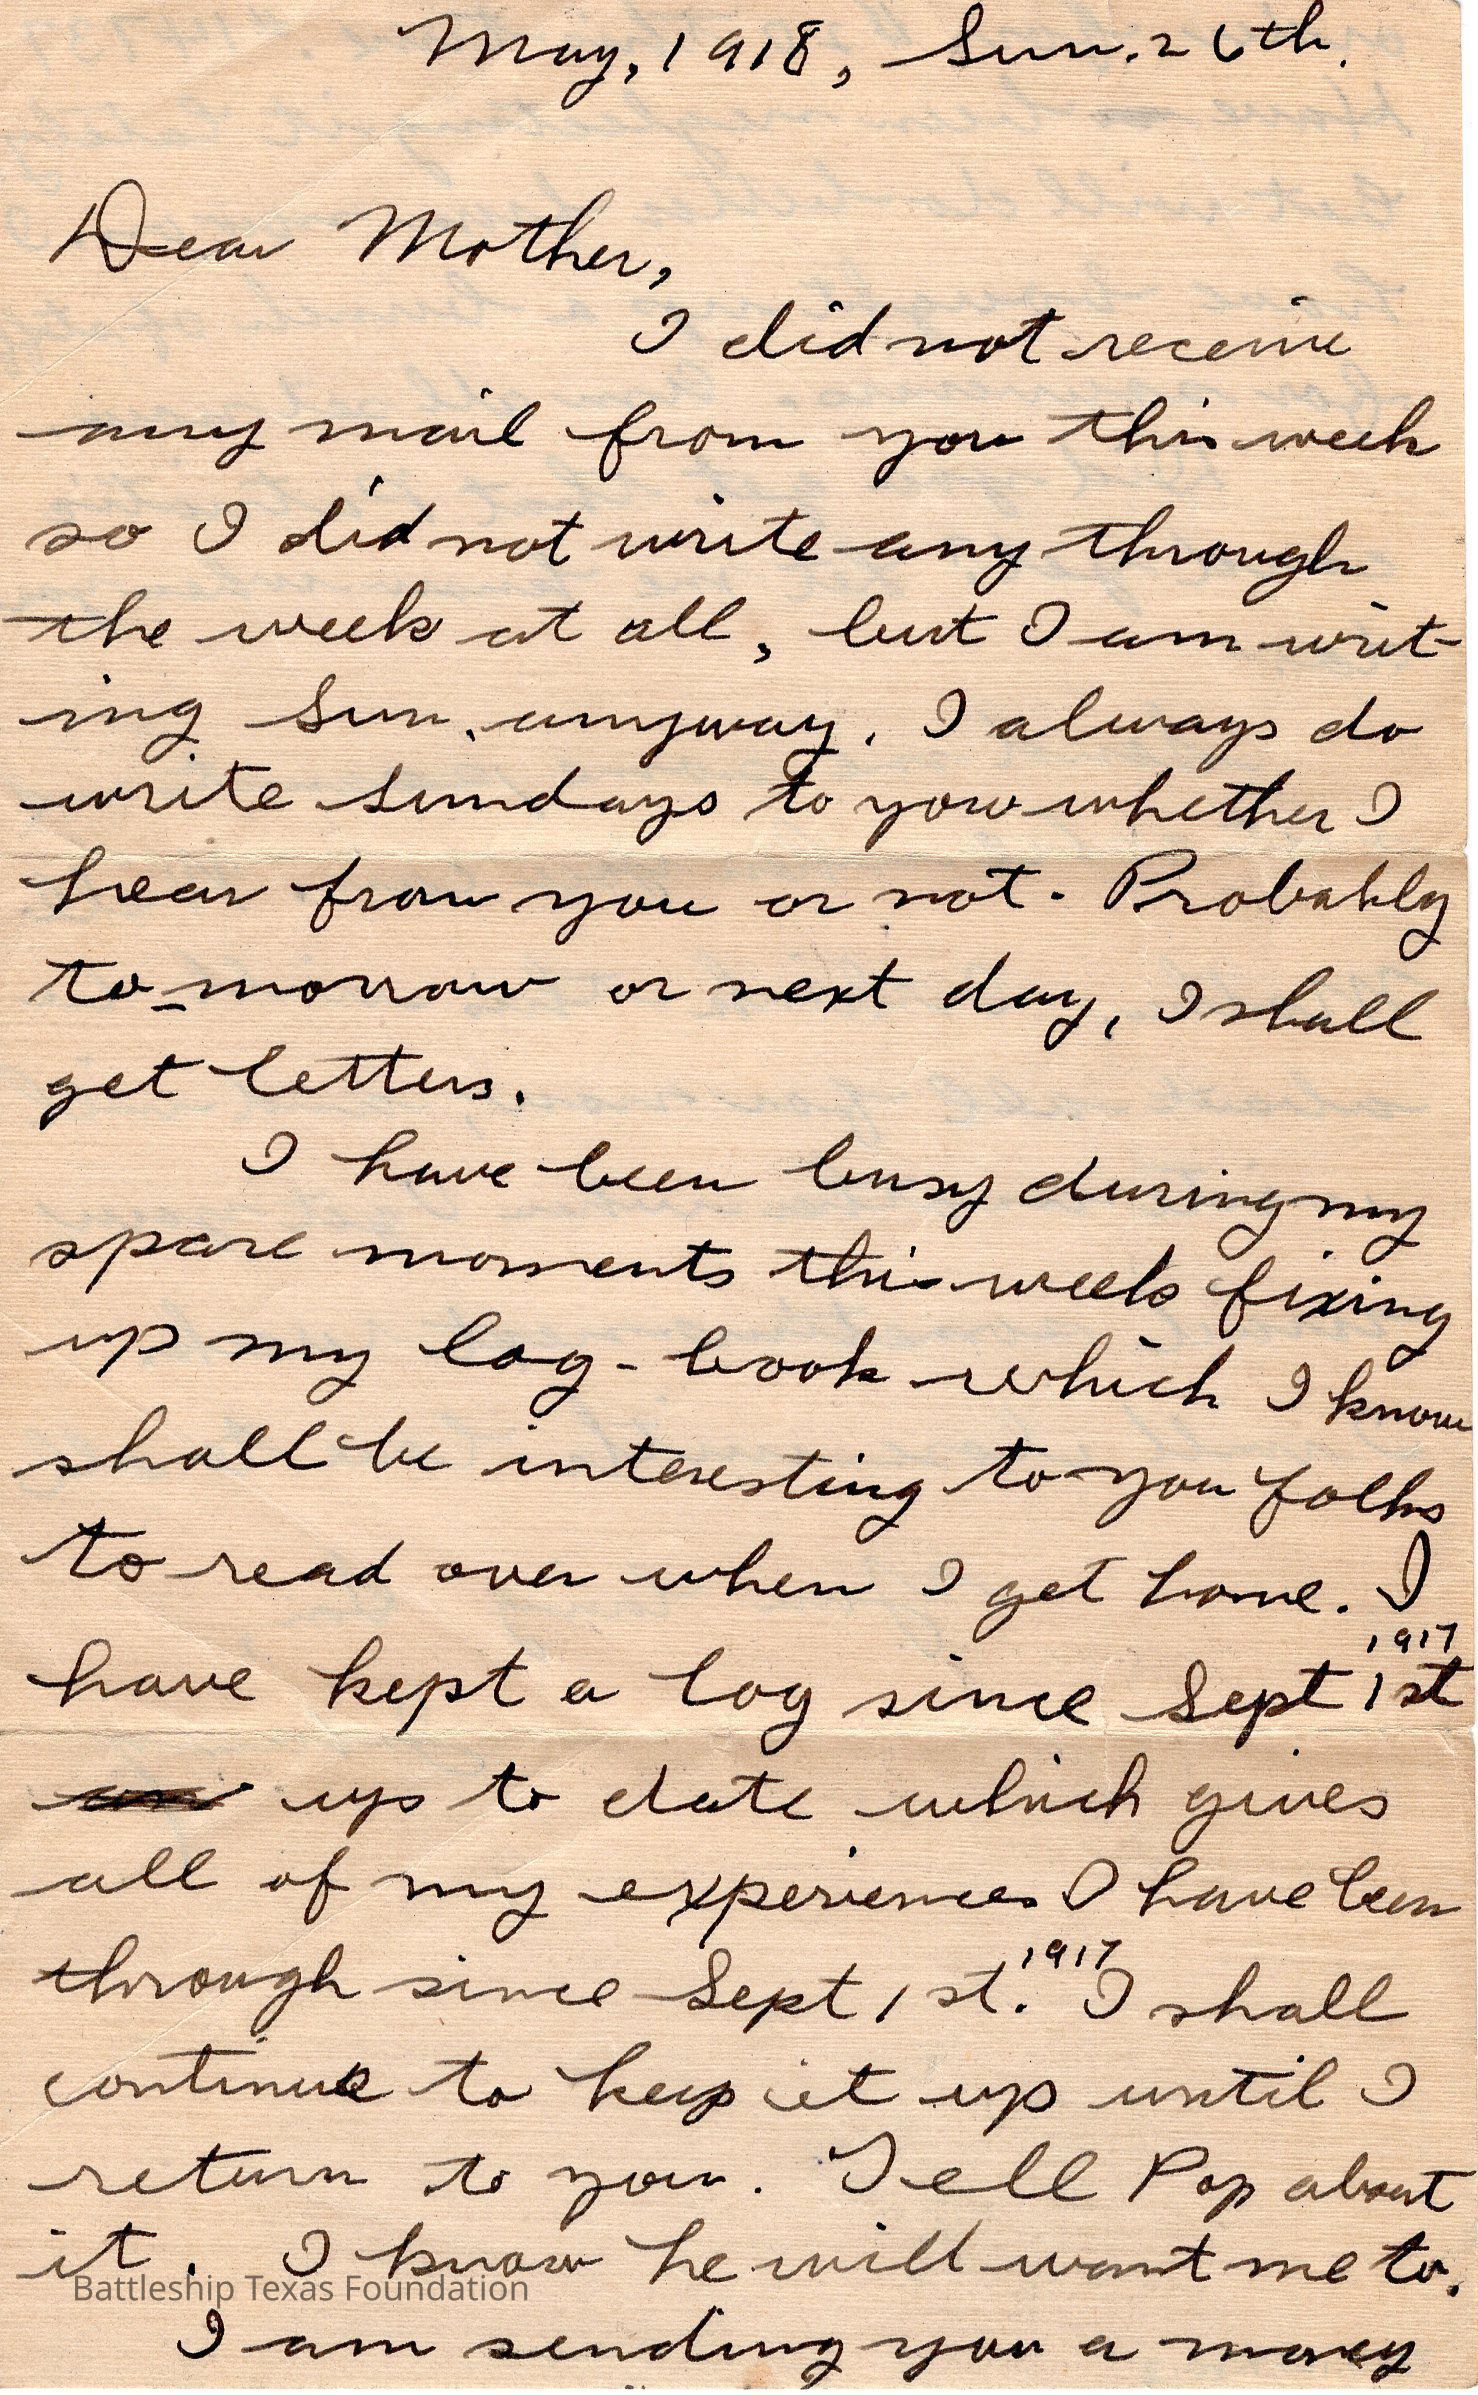 May, 1918, Sun. 26th.
Dear Mother,
I did not receive
any mail from you this week
so I did not write any through
the week at all, but I am writ-
ing Sun. anyway. I always do
write Sundays to you whether I
hear from you or not. Probably
to-morrow or next day, I shall
get letters.
I have been busy during my
spare moments this week fixing
up my log-book which I know
shall be interesting to you folks
to read over when I get home. I
1917
have kept a log since Sept 1st
up to date which gives
all of my experiences I have been
1917
through since Sept 1st. I shall
continue to keep it up until I
return to you. Tell Pop about
it. I know he will want me to.
Battleship Texas Foundation
I am sending you a money